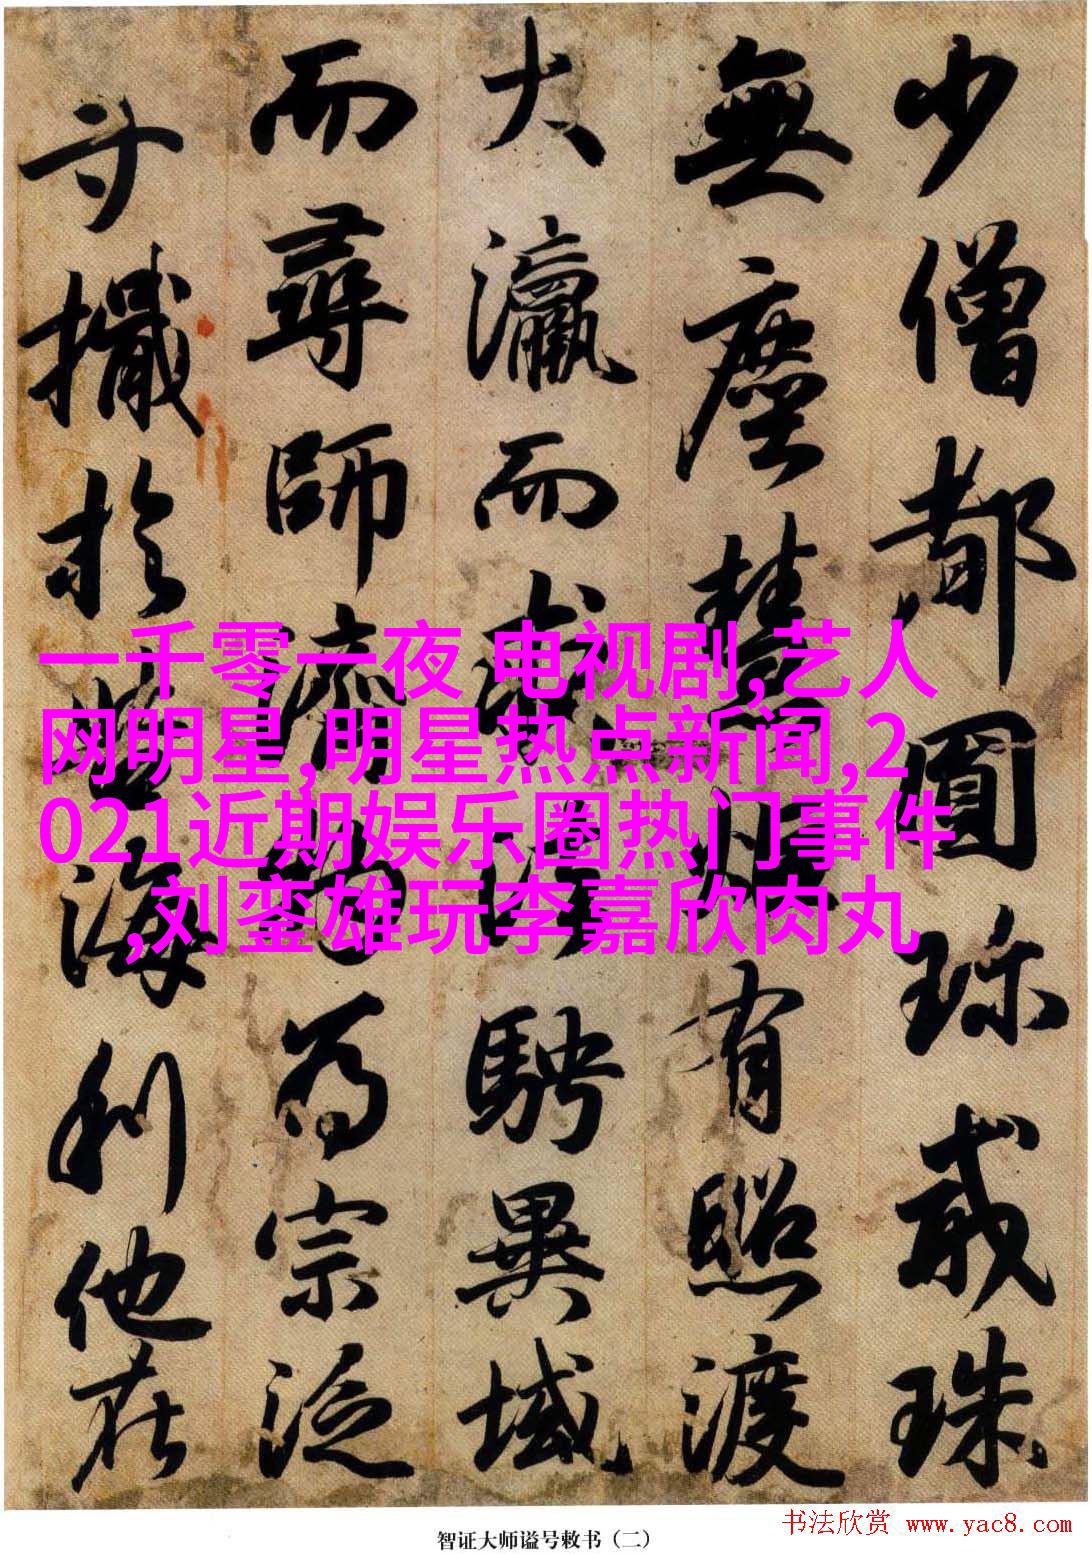 少僧都圓珍戒珠
無塵慧炬有照渡
大瀛而求法騁異域
而尋師濟物為宗泛
寸檝於海利他在
一千零一夜 电视剧,艺人
网明星,明星热点新闻,2
021近期娱乐圈热门事件
,刘銮雄玩李嘉欣肉丸
智证大师谥号敕书（二）
书法欣赏 www.yac8.com